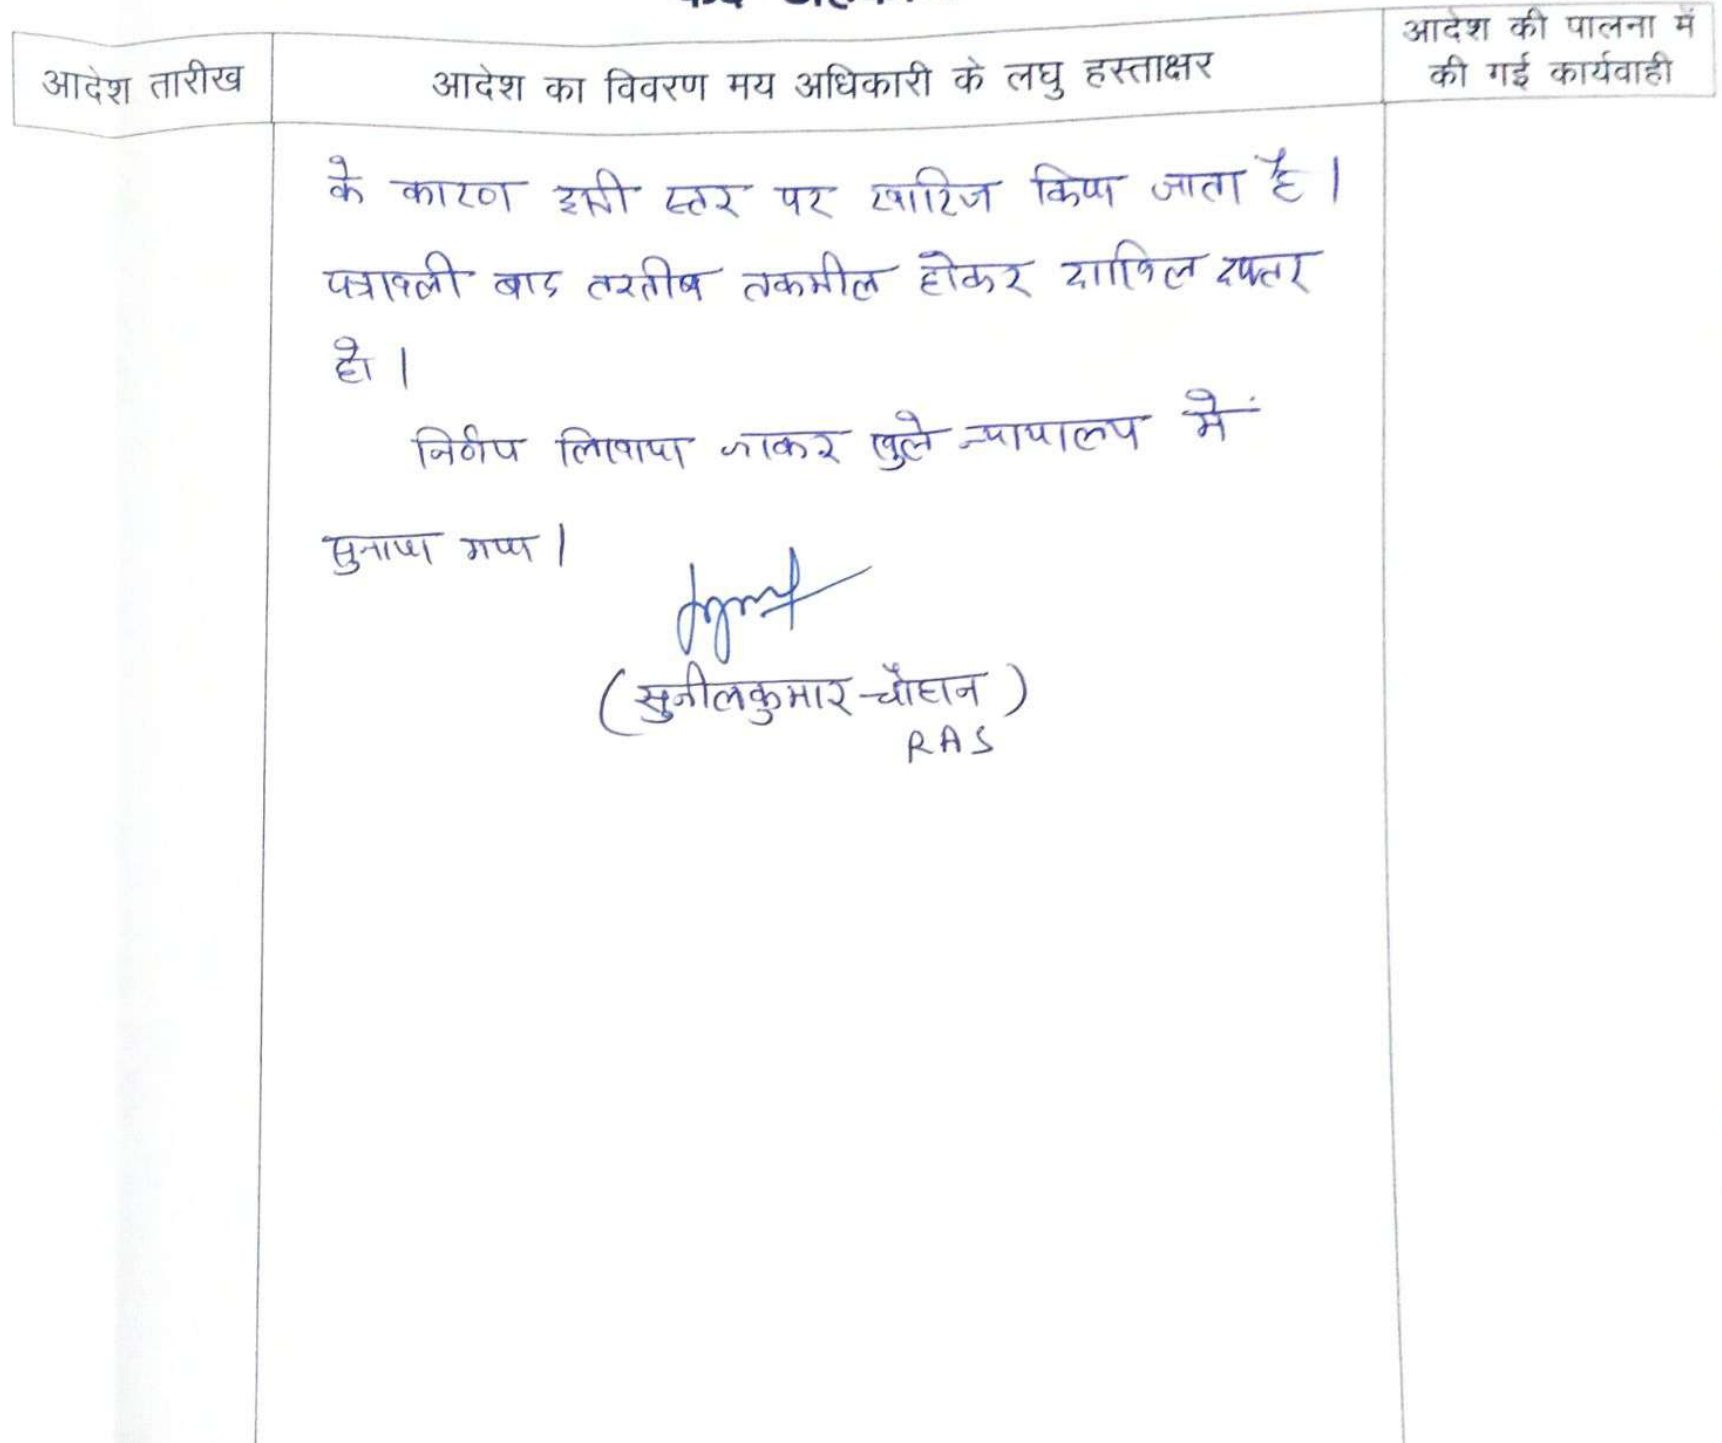 आदेश तारीख
आदेश का विवरण मय अधिकारी के लघु हस्ताक्षर
आदेश की पालना में
की गई कार्यवाही
के कारण इसी स्तर पर खारिज किया जाता है |
पत्रावली बाद तरतीब तकमील होकर दाखिल दफ्तर
हो |
निर्णय लिखाया जाकर खुले न्यायालय में
सुनाया गया |
(सुनीलकुमार चौहान)
RAS